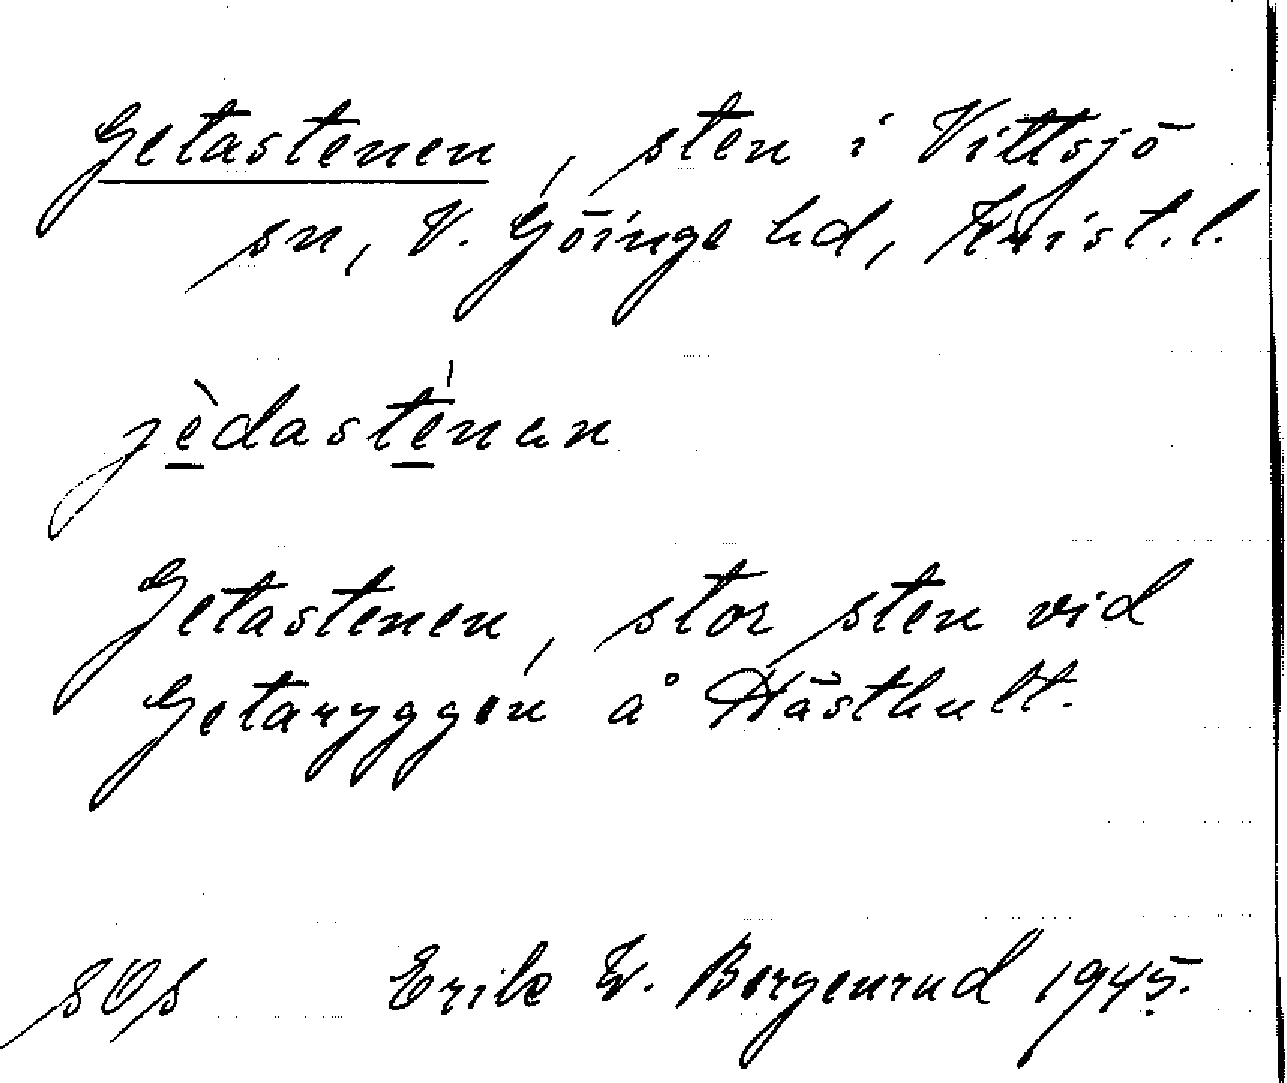 Getastenen, sten i Vittsjö
sn, V. Göinge hd, Krist. l.
jèdasténan
Getastenen, stor sten vid
Getaryggen å Hästhult.
Erik W. Bergenrud 1945.